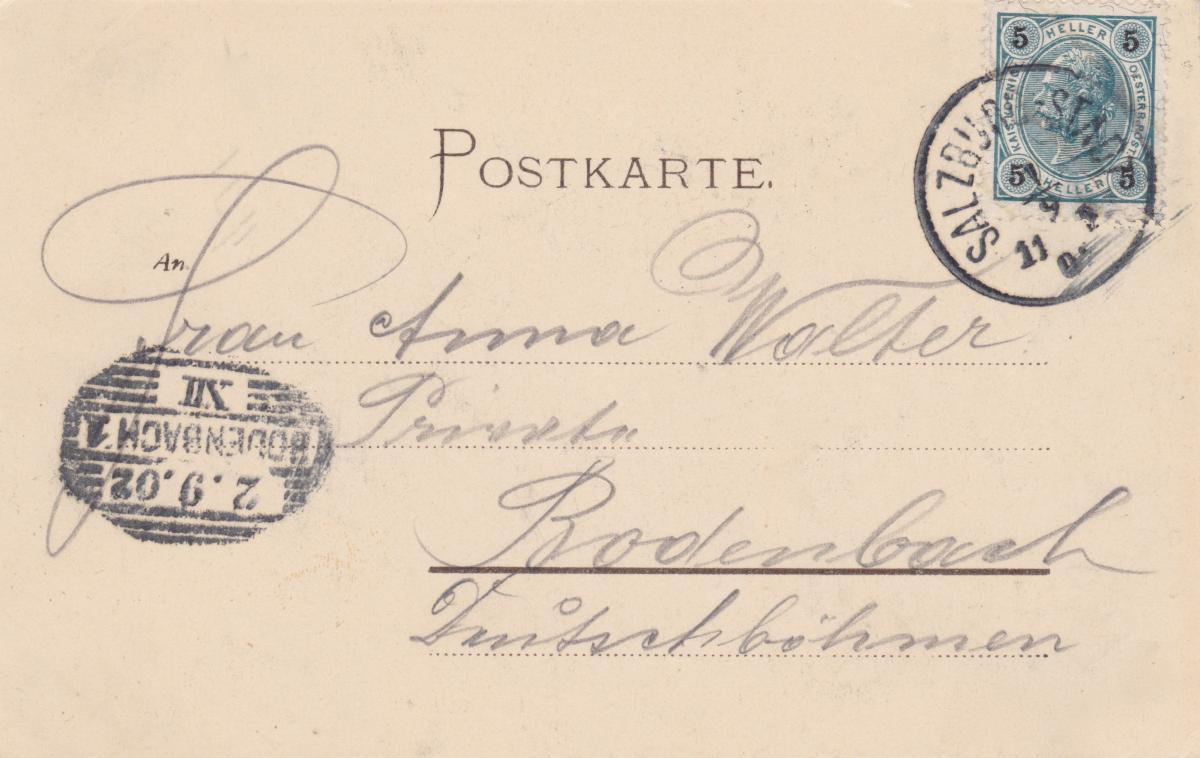 5 HELLER 5
KAIS. KOENIG.
OESTERR.
5 HELLER 5
SALZBURG-STADT
1 9
11
POSTKARTE.
An
Frau Anna Walter
Private
Bodenbach
Deutschböhmen
XII
BODENBACH 1
2.9.02